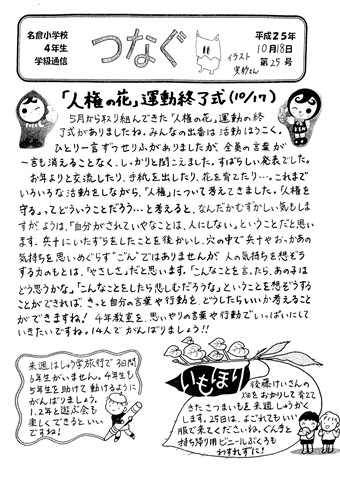 名倉小学校
4年生
学級通信
つなぐ
イラスト
平成25年
10月18日
第25号
「人権の花」運動終了式(10/17)
5月から取り組んできた"人権の花"運動の終
了式がありましたね。みんなの出番は活動ほうこく。
ひとり一言ずつせりふがありましたが、全員の言葉が
一言も消えることなく、しっかりと聞こえました。すばらしい発表でした。
お年よりと交流したり、手紙を出したり、花を育てたり…。これまで
いろいろな活動をしながら、"人権"について考えてきました。「人権を
守る。」ってどういうことだろう…と考えると、なんだかむずかしい気もしま
すが、ようは、「自分がされていやなことは、人にしない」ということだと思い
ます。兵十にいたずらをしたことを後かいし、穴の中で兵十やおっかあの
気持ちを思いめぐらす"ごん"ではありませんが、人の気持ちを想ぞう
する力のもとは、「やさしさ」だと思います。「こんなことを言ったら、あの子は
どう思うかな。」「こんなことをしたら悲しむだろうな」ということを想ぞうする
ことができれば、きっと自分の言葉や行動を、どうしたらいいか考えること
ができますね!4年教室を、思いやりの言葉や行動でいっぱいにして
いきたいですね。14人でがんばりましょう!!
来週はしゅう学旅行で3日間
6年生がいません。4年生も
5年生を助けて動けるように
がんばりましょう。
1.2年と遊ぶ会も
楽しくできるといい
ですね!
いもほり
後藤けいさんの
畑をおかりして育てて
きたさつまいもを来週しゅうかく
します。25日は、よごれてもいい
服で来てくださいね。ぐんてと
持ち帰り用ビニールぶくろも
わすれずに!